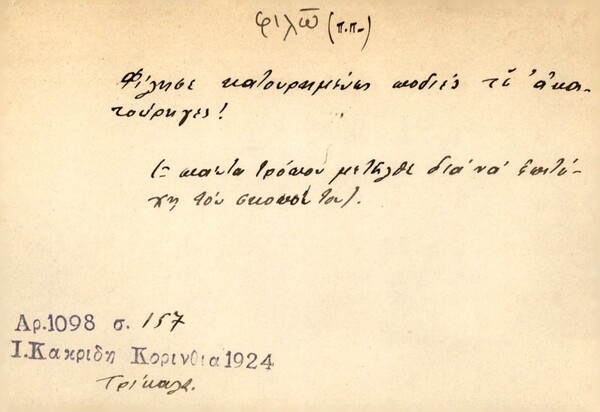 φιλῶ (π.π.)
Φίλησε κατουρημένες ποδιές κι' ἀκα-
τούρηγες!
(= παντα τρόπον μετῆλθε διά νά ἐπιτύ-
χη τόν σκοπό του).
Αρ. 1098 σ. 157
Ι. Κακριδη Κορινθια 1924
Τρίκαλα.